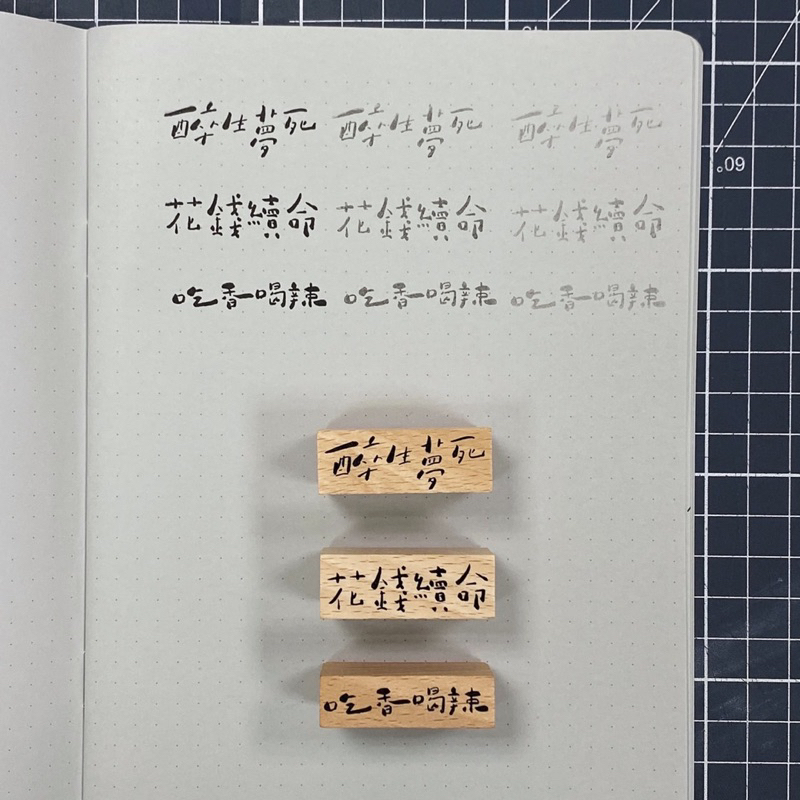 醉生夢死 醉生夢死 醉生夢死
花錢續命 花錢續命 花錢續命
吃香喝辣 吃香喝辣 吃香喝辣
醉生夢死
花錢續命
吃香喝辣
60°